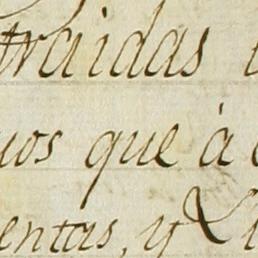 traidas
uos que à
entas, y